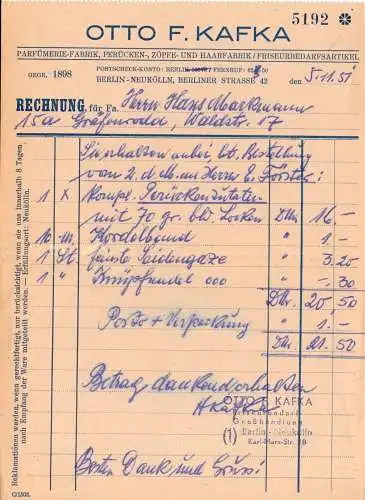 5192 ✻
OTTO F. KAFKA
PARFÜMERIE-FABRIK, PERÜCKEN-, ZÖPFE- UND HAARFABRIK / FRISEURBEDARFSARTIKEL
GEGR. 1898
POSTSCHECK-KONTO: BERLIN FERNRUF: 62 50
BERLIN-NEUKÖLLN, BERLINER STRASSE 42 den 5.11.51
RECHNUNG, für Fa. Herrn Hans Markmann
15a Gräfenroda, Waldstr. 17
Sie erhalten anbei lt. Bestellung
von 2. d. M. an Herrn E. Förster:
1 x kompl. Perückenzutaten
mit 70 gr. bld. Locken DM 16.—
10 m. Kordelband " 1.—
1 St. feinste Seidengaze " 3.20
1 " Knüpfnadel ooo " —.30
DM 20,50
Porto + Verpackung " 1.—
DM 21.50
Betrag dankend erhalten
OTTO F. KAFKA
Friseurbedarf
Großhandlung
(1) Berlin - Neukölln
Karl-Marx-Str. 78
Besten Dank und Gruss!
Reklamationen werden, wenn gerechtfertigt, nur berücksichtigt, wenn sie uns innerhalb 8 Tagen
nach Empfang der Ware mitgeteilt werden. — Erfüllungsort: Neukölln.